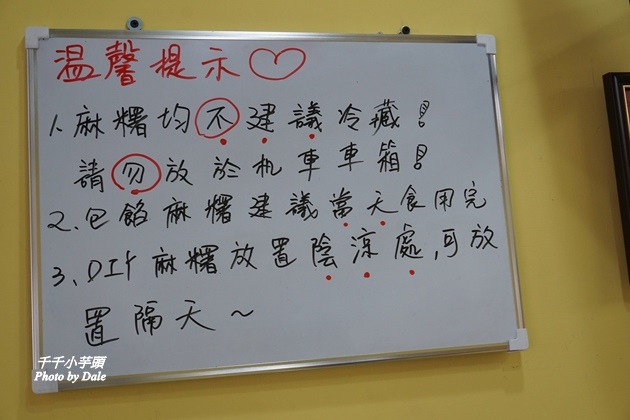 溫馨提示♡
1.麻糬均不建議冷藏!
請勿放於机車車箱!
2.包餡麻糬建議當天食用完
3、DIY麻糬放置陰涼處,可放
置隔天~
千千小芋頭
Photo by Dale